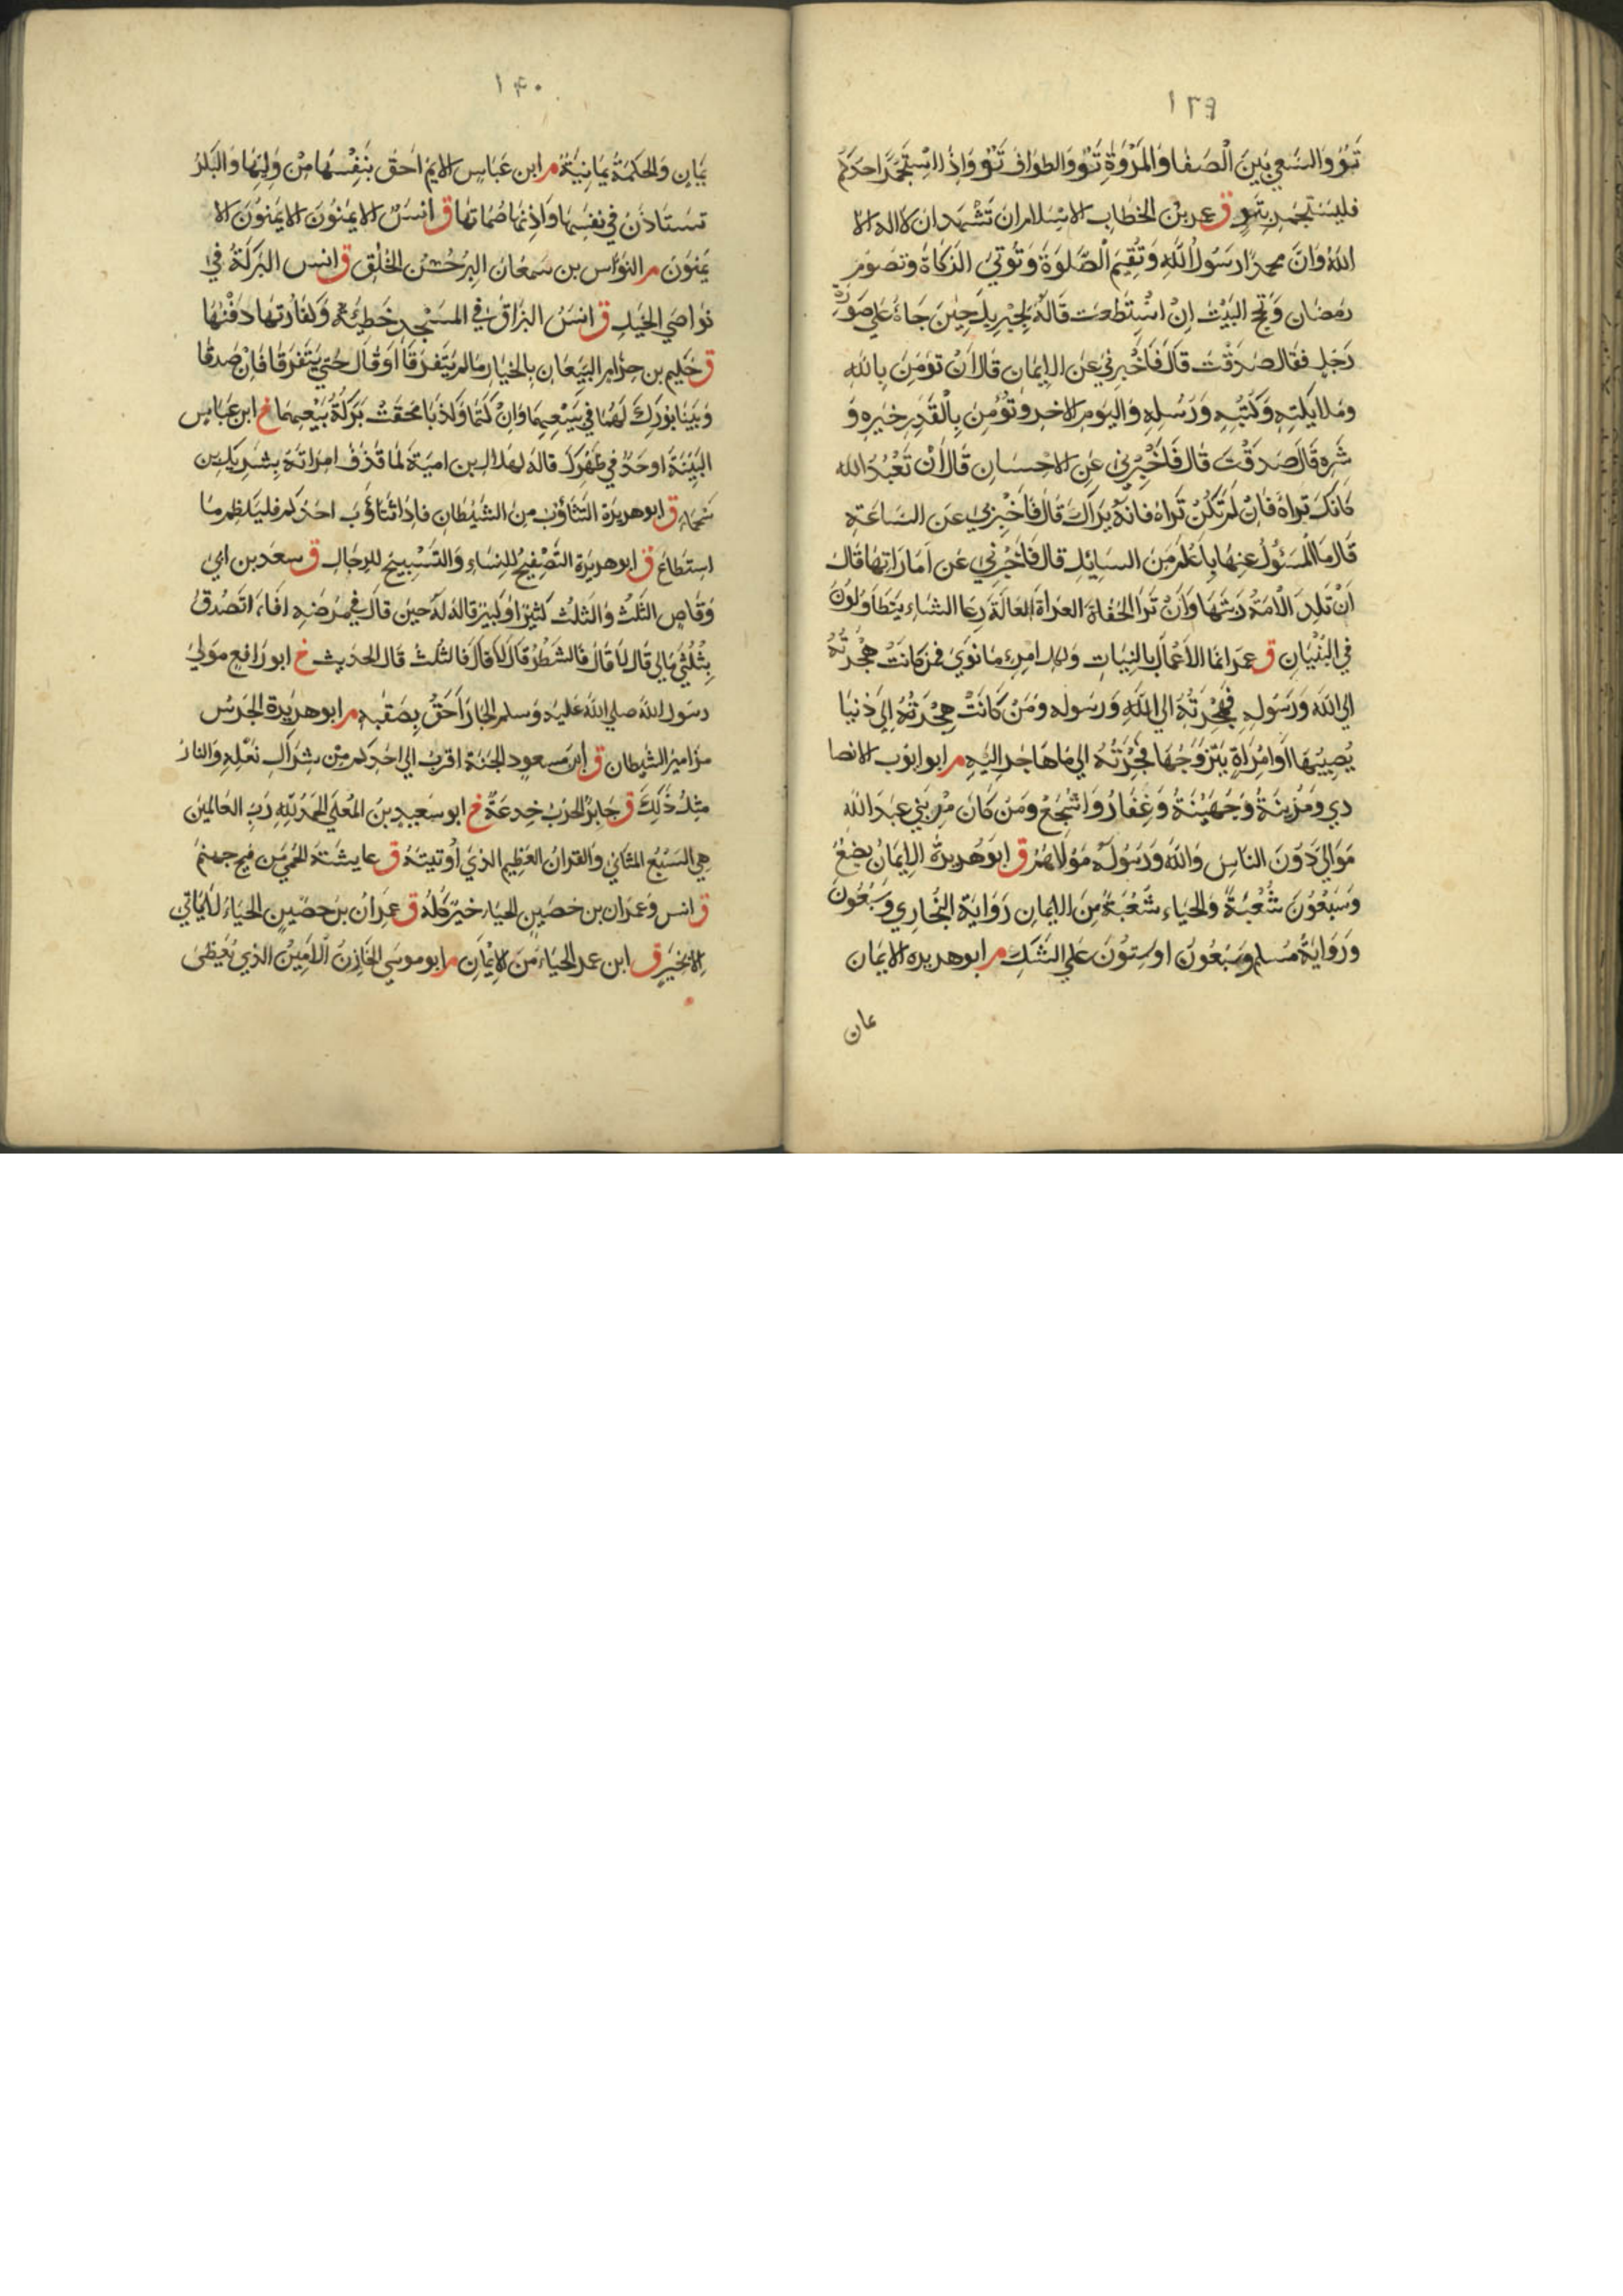 ١٣٩
تَوٌّ وَالسَّعي بَيْنَ الْصَفَا وَالمَرْوَةِ تَوٌّ وَالطوَاف تَوٌّ وَاِذْا اسْتَجْمَرَ احَدَكُم
فليَسْتجمِر بِتَوٍّ ق عمر بْن الخطاب الاسْلام ان تَشْهَد ان لا اله الا
اللهُ وَانَّ محمدًا رسَوُلُ اللّهِ وَتُقِيمَ الصَّلوَةَ وَتُوتيَ الزكَاةَ وَتصَومَ
رمَضان وَتحج البَيْتَ اِنْ اسْتَطَعت قالَهُ لجِبْريلَ حِيْنَ جَاءَهُ علي صَوُرَة
رَجَلٍ فقال صَدَقْتَ قالَ فَاَخْبِرنيْ عَن الاِيمَان قالَ انْ تؤمِنَ باللهِ
وَملايكتِهِ وَكتُبِهِ وَرَسُلِهِ وَاليَومِ الاخر وتُؤْمِنَ بِالْقَدَر خيَرِه وَ
شَرهِ قالَ صَدَقْتَ قالَ فَاَخْبِرْنيْ عَن الاحْسَان قالَ اَنْ تَعْبُدَ الله
كَانكَ تَراهُ فَاِن لَمْ تكُنْ تَرَاهُ فانَهُ يَرَاكَ قالَ فَاَخْبِرْنيْ عَن السَّاعَةِ
قالَ مَا المَسَئوُلُ عنهَا بِاَعْلَم مِنَ السَايلِ قالَ فَاَخْبِرْني عَن اَمَارَاتِهَا قالَ
اَنْ تلِدَ الْاَمَةُ رَبَتَهَا وَاَنْ تَرَا الحُفَاةَ العرَاةَ العَالَةَ رِعَا الشاءِ يَتَطَاوَلُونَ
في البُنْيَانِ ق عمَر انما الاَعْمَالُ بِالنِيَاتِ وَلكل امرِءٍ مَا نوَي فمَنْ كانَتْ هِجْرَتُهُ
الي الله وَرَسُولهِ فَهِجْرَتَهُ الي اللهِ وَرَسولهِ وَمَنْ كَانَتْ هِجْرَتُهُ اِلي دُنيَا
يُصِيبُهَا اَوَامْرَاةٍ يَتَزَوَجُهَا فَهِجْرَتُهُ الي مَا هَاجَر اليَهِ م ابو ايوب الانصا
ري وَمُزينَةُ وَجُهَيْنَةُ وَغِفَارُ وَاشْجَعُ وَمَن كَانَ مِنْ بَنِي عبَد الله
مَوَاليَ دَونَ الناسِ وَاللهُ وَرَسُولُهُ مَوْلَاهُمْ ق ابو هُريرةَ الاِيمَانُ بِضعٌ
وَسَبْعُونَ شُعْبَةً وَالحَيَاءُ شُعْبَةٌ مِنَ الايمانِ رَوايَةُ البُخَارِي وَسَبْعُونَ
وَرَوايَةُ مُسلمٍ وَسَبْعُونَ اوَسِتوُنَ عَلَي الشَكِ م ابو هريره الايمَان
يمان
١٤٠
يَمَانٍ وَالحكمَةُ يمَانِيَةٌ م ابن عَباسٍ الايم احَق بنَفْسِهَا مِنْ وَليِهَا وَالبكر
تَستَاذَن في نفسِهَا وَاِذنهَا صُمَاتهَا ق انسَ الايمَنوُنَ الايمَنوُنَ الا
يمنوُنَ م النوَاس بن سَمعَانَ البِرُ حُسْن الخُلْقِ ق انس البَرَكَةُ في
نوَاصَي الخيَلِ ق انسَ البُزَاقُ في المسَجدِ خَطِيئَةٌ وَكفَارتهَا دَفْنُهَا
ق حَكيم بن حِزَام البَيِعَانِ بالخيَار مَا لم يَتَفرَقَا اَوَ قالَ حَتي يَتَفَرَقَا فَاِنْ صَدَقا
وَبَيَنَا بوُرِكَ لَهُمَا في بَيْعِهِمَا وَاِنْ كَتَمَا وَكذَبَا محِقَتْ بَرَكَةُ بَيْعِهِمَا خ ابن عبَاس
البَيِنَةُ اوَحَدٌ في ظَهْرِكَ قالهُ لهِلالِ بن اميَةَ لمَا قذَفَ امرَاتهُ بِشَرِيكِ بن
سَحْمَاء ق ابو هريرَة التَثَاؤبُ مِنَ الشيَطانِ فاِذا تثَاؤَبَ احَدكم فليَكظِم مَا
استطَاعَ ق ابو هريَرَة التَصْفِيحُ للِنسَاءِ وَالتَسْبِيحُ للِرجَالِ ق سعَد بن ابي
وَقاصٍ الثُلثُ وَالثلُث كَثِيرٌ اوَ كبَيرٌ قالهُ لَهُ حِينَ قالَ في مَرضهِ افَاَتَصَدقُ
بِثُلُثي مَالي قالَ لاَ قالَ فَالشَطْرُ قالَ لاَ قالَ فَالثُلثُ قالَ الحديث خ ابو رَافعٍ مَولي
رسَول الله صلي الله عَليَه وَسلم الجَارُ اَحَقُ بِصَقبِهِ م ابو هريَرة الجَرَسُ
مزَامِيرُ الشيطان ق ابن مسعودٍ الجنَةُ اقرَبُ الي احَدِكم مِن شِرَاكِ نعْلِهِ وَالنارُ
مِثلُ ذَلكَ ق جَابِرُ الحرَبُ خِدعَةٌ خ ابو سَعيدٍ بن المُعلي الحَمدُ لِلّهِ رَبِ العَالمِينَ
هِي السَبْعُ المثَاني وَالقُرَانُ العَظِيمُ الذيَ اُوتيتَهُ ق عايشَةَ الحُمي مِن فيحِ جهنمَ
ق انس وَعمرَان بن حصَينٍ الحيَاءُ خيَرٌ كلهُ ق عِمرَانُ بن حصَينٍ الحيَاءُ لاَ يَاتي
الا بخيَرٍ ق ابن عمر الحيَاءُ مَنَ الاِيْمَانِ م ابو موسَي الخَازِنُ الْاَمِينُ الذي يُعْطيَ